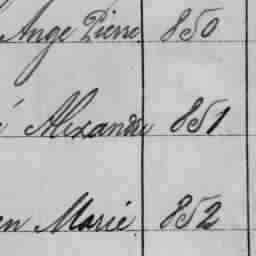 Ange Pierre 850
é Alexandre 851
en Marie 852